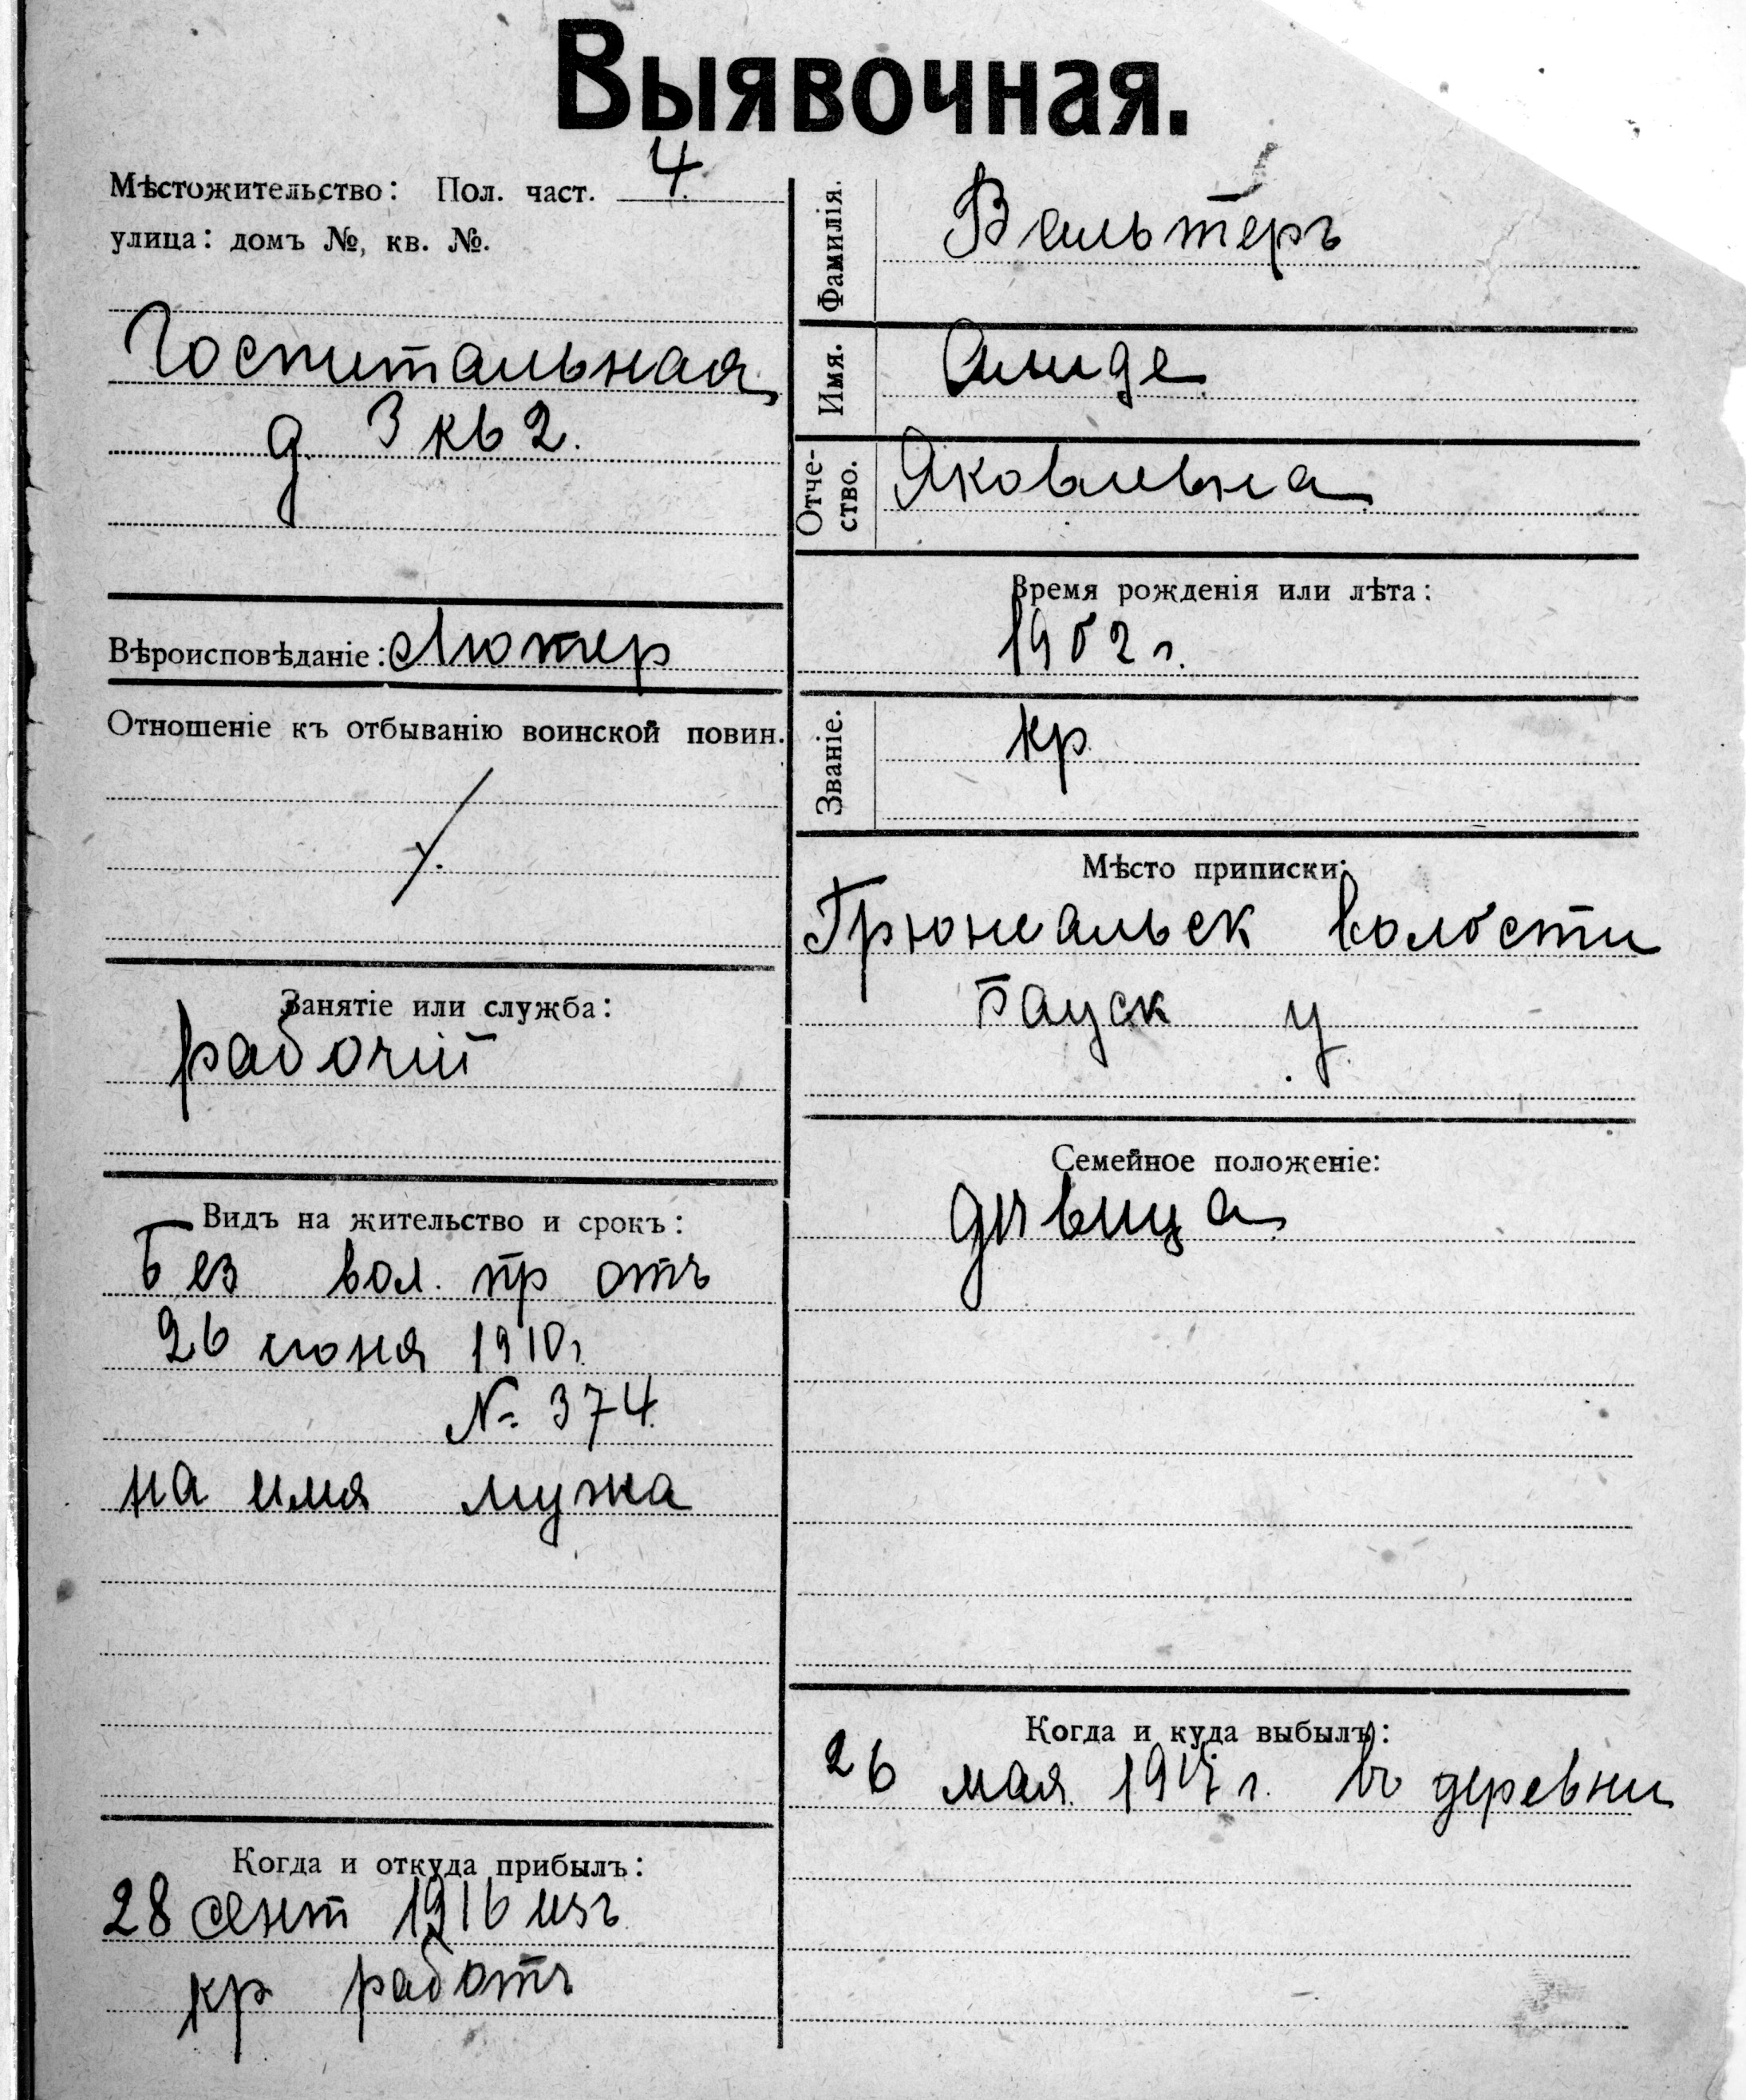 Выявочная.
Мѣстожительство: Пол. част. 4.
улица: домъ №, кв. №.
Госпитальная
д. 3 кв 2.
Вѣроисповѣданіе: Лютер
Отношеніе къ отбыванію воинской повин.
Занятіе или служба:
рабочій
Видъ на жительство и срокъ:
Без вол. пр отъ
26 июня 1910г.
№ 374.
на имя мужа
Когда и откуда прибылъ:
28 сент 1916 изъ
кр работъ
Фамилія.
Вальтеръ
Имя.
Алиде
Отче-
ство.
Яковлевна
Время рожденія или лѣта:
1902 г.
Званіе.
кр.
Мѣсто приписки:
Грюнвальск волости
Бауск у.
Семейное положеніе:
дѣвица
Когда и куда выбылъ:
26 мая 1917 г. въ деревни